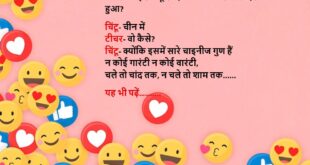 हुआ?
चिंटू- चीन में
टीचर- वो कैसे?
चिंटू- क्योंकि इसमें सारे चाइनीज गुण हैं
न कोई गारंटी न कोई वारंटी,
चले तो चांद तक, न चले तो शाम तक......
यह भी पढ़ें..........